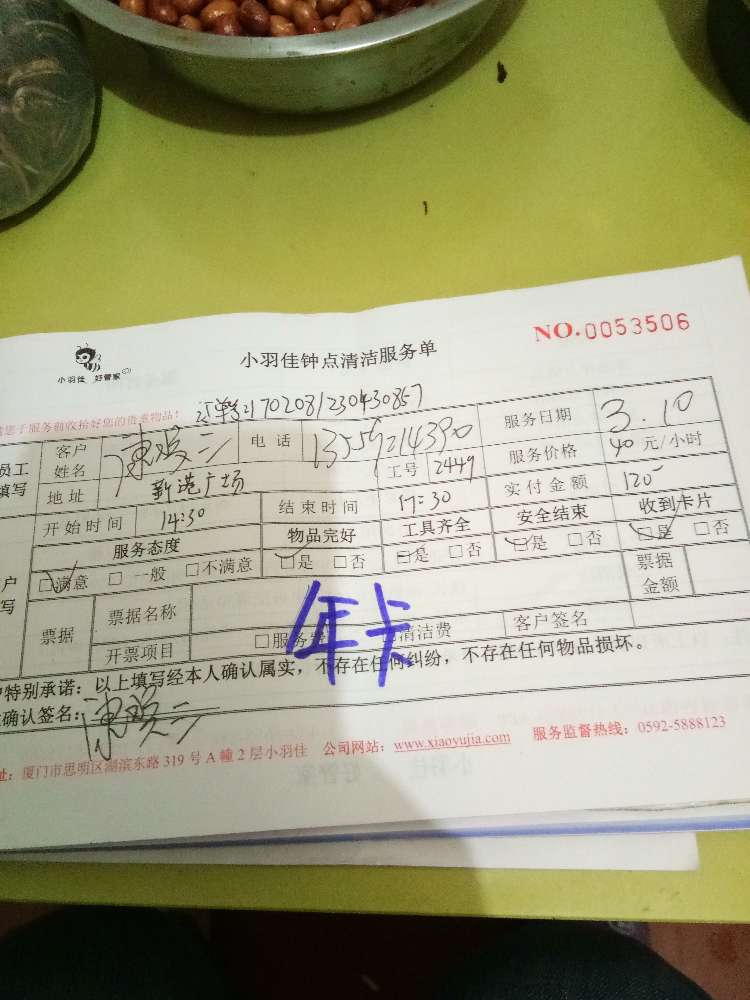 小羽佳 好管家
小羽佳钟点清洁服务单
NO.0053506
您于服务前收拾好您的贵重物品!
订单号:1702081230430857
员工
填写
客户
姓名
电话
13559214390
服务日期
3.10
地址
新港广场
工号
2449
服务价格
40元/小时
开始时间
14:30
结束时间
17:30
实付金额
120-
服务态度
物品完好
工具齐全
安全结束
收到卡片
户
写
□满意 □一般 □不满意
□是 □否
□是 □否
□是 □否
□是 □否
票据
票据名称
票据
金额
开票项目
□服务费
□清洁费
客户签名
年卡
户特别承诺:以上填写经本人确认属实,不存在任何纠纷,不存在任何物品损坏。
确认签名:
址:厦门市思明区湖滨东路319号A幢2层小羽佳 公司网站:www.xiaoyujia.com 服务监督热线:0592-5888123